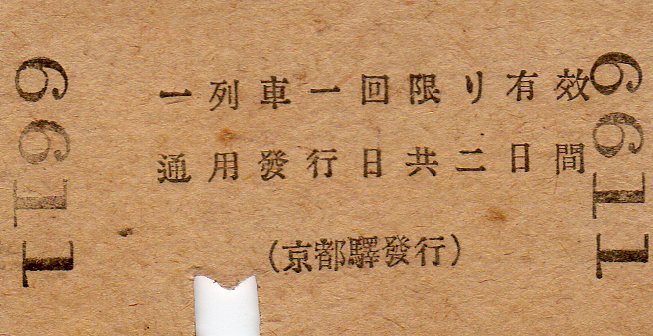 一列車一回限リ有效
通用發行日共二日間
(京都驛發行)